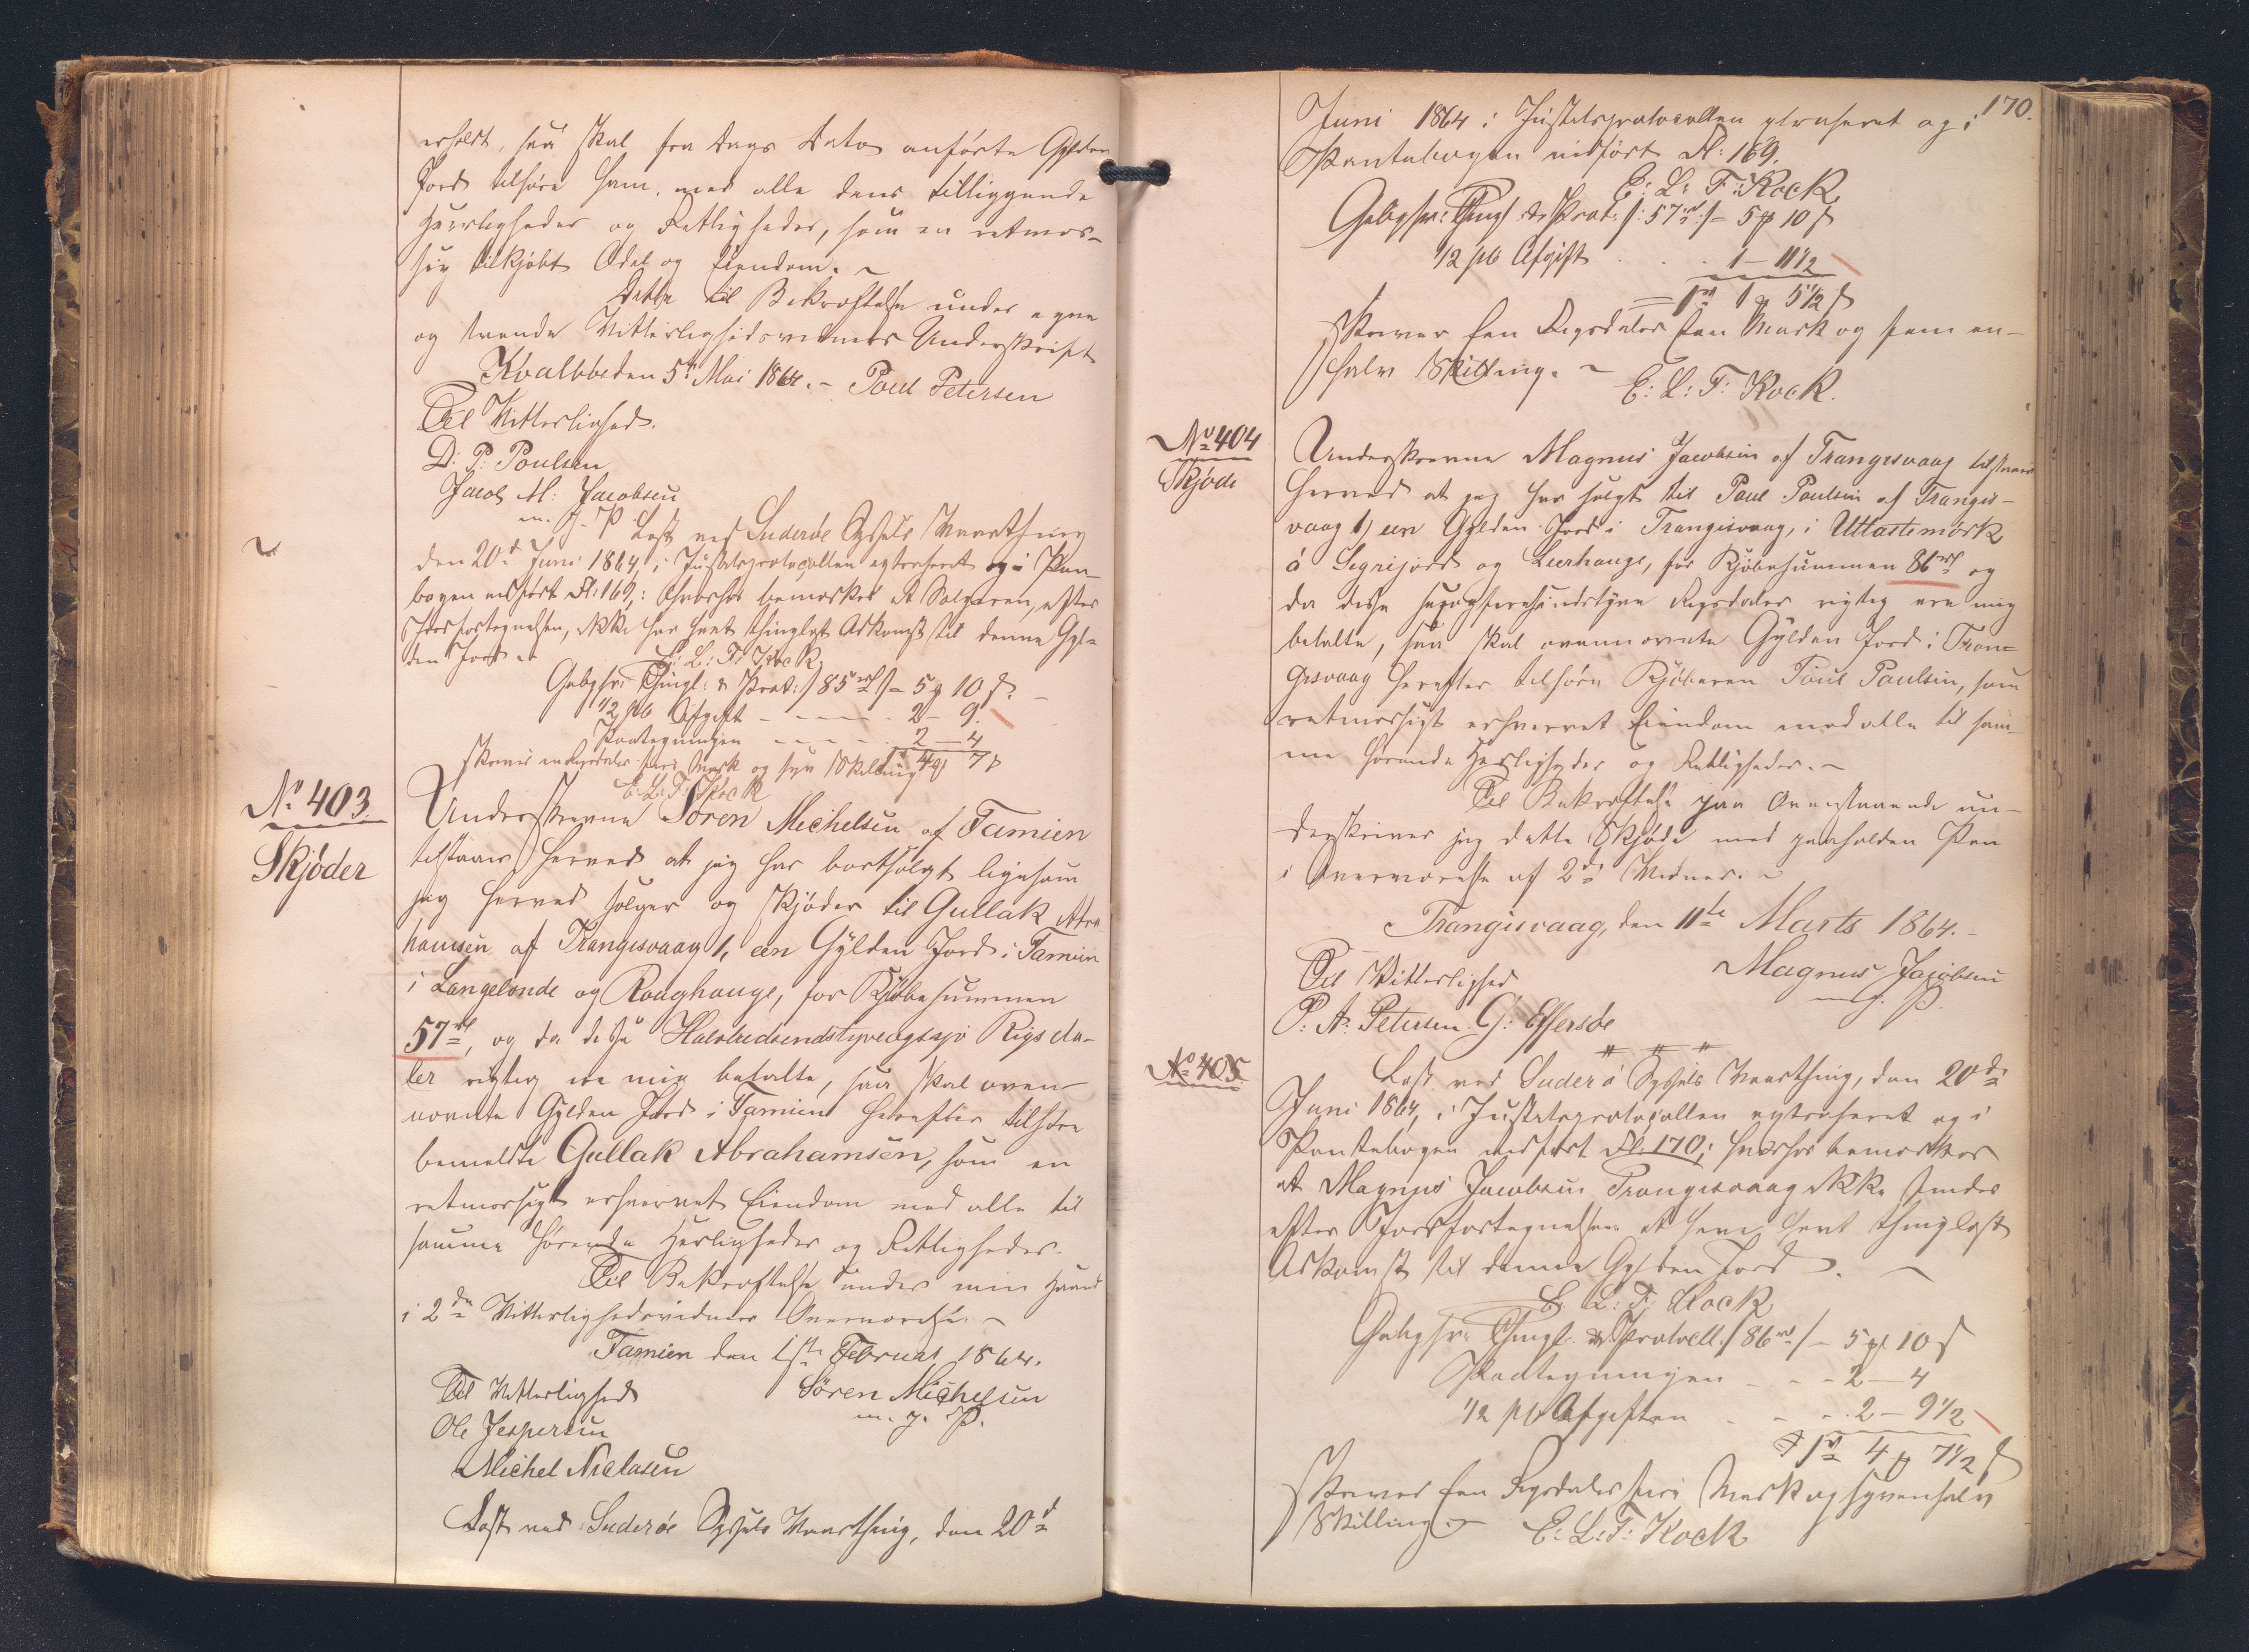 erholdt, saa skal fra Dags Dato anførte Gylden
Jord tilhøre ham, med alle dens tilliggende
Herligheder og Rettigheder, som en retmæs-
sig tilkjøbt Odel og Eiendom. ~
Dette til Bekræftelse under egen
og tvende Vitterlighedsvidners Underskrift
Kvalbbøden 5te Mai 1864. – Poul Petersen
Til Vitterlighed.
D: P: Poulsen
Jacob M: Jacobsen
m. f. P.
Læst ved Suderøe Syssels Vaarthing
den 20d Juni 1864, i Justitsprotocollen extraheret og i Pan-
bogen indført Fl: 169,: hvorhos bemærkes at Sælgeren, efter
Jordfortegnelsen, ikke har havt thinglæst Adkomst til denne Gyl-
den Jord. ~
E: L: F: Kock
Gebyhr: Thingl: & Prot: /85 rd/ = 5 ꝟ 10 s.
1/2 pCt Afgift - - - - 2 – 9.
Paategningen - - - - 2 – 4
skriver en Rigsdaler fire Mark og syv Skilling 1 rd 4 ꝟ 7 s
E: L: F: Kock
No 403.
Skjøder
Underskrevne Sören Michelsen af Famien
tilstaaer herved at jeg har bortsolgt ligesom
jeg herved sælger og skjøder til Gullak Abra
hamsen af Trangisvaag 1, een Gylden Jord i Famien
i Langelonde og Roaghauge, for Kjøbesummen
57 rd, og da disse Halvtredsendstyveogsyv Rigsda-
ler rigtig ere mig betalte, saa skal oven-
nævnte Gylden Jord i Famien herefter tilhøre
bemeldte Gullak Abrahamsen, som en
retmæssigt erhvervet Eiendom med alle til
samme hørende Herligheder og Rettigheder.
Til Bekræftelse under min Haand
i 2de Vitterlighedsvidners Overværelse. ~
Famien den 1ste Februar 1864.
Til Vitterlighed
Sören Michelsen
m. f. P.
Ole Jespersen
Michel Niclasen
Læst ved Suderøe Syssels Vaarthing, den 20d
170.
Juni 1864 i Justitsprotocollen extraheret og i
Pantebogen indført Fl: 169.
E: L: F: Kock
Gebyhr: Thingl & Prot: /: 57 rd:/ = 5 ꝟ 10 s
1/2 pCt Afgift . . . 1 – 11 1/2
= 1 rd 1 ꝟ 5 1/2 s
skriver Een Rigsdaler Een Mark og fem en-
halv Skilling. ~
E: L: F: Kock.
No 404
Skjøde
Underskrevne Magnus Jacobsen af Trangisvaag tilstaaer
herved at jeg har solgt til Poul Poulsen af Trangis-
vaag 1) een Gylden Jord i Trangisvaag, i Uttastemørk
á Segrijord og Leerhauge, for Kjøbesummen 86 rd og
da disse sexogfirehundstyve Rigsdaler rigtig ere mig
betalte, saa skal ovennævnte Gylden Jord i Tran-
gisvaag herefter tilhøre Kjøberen Poul Poulsen, som
retmæssigt erhvervet Eiendom med alle til sam-
me hørende Herligheder og Rettigheder. ~
Til Bekræftelse paa Ovenstaaende un-
derskriver jeg dette Skjøde med paaholden Pen
i Overværelse af 2de Vidner. ~
Trangisvaag, den 11te Marts 1864. –
Til Vitterlighed
Magnus Jacobsen
m. f. P.
P: A: Petersen G: Effersøe
No 405
Læst ved Suderø Syssels Vaarthing, den 20de
Juni 1864, i Justitsprotocollen extraheret og i
Pantebogen indført Fl: 170; hvorhos bemærkes
at Magnus Jacobsen Trangisvaag ikke findes
efter Jordfortegnelsen at have havt thinglæst
Adkomst til denne Gylden Jord. ~
E: L: F: Kock
Gebyhr: Thingl. & Protocll. /86 rd/ – 5 ꝟ 10 s
Paategningen - - - 2 – 4
1/2 pCt Afgiften - - - 2 – 9 1/2
1 rd 4 ꝟ 7 1/2 s
skriver Een Rigsdaler fire Mark og syvenhalv
Skilling. ~
E: L: F: Kock